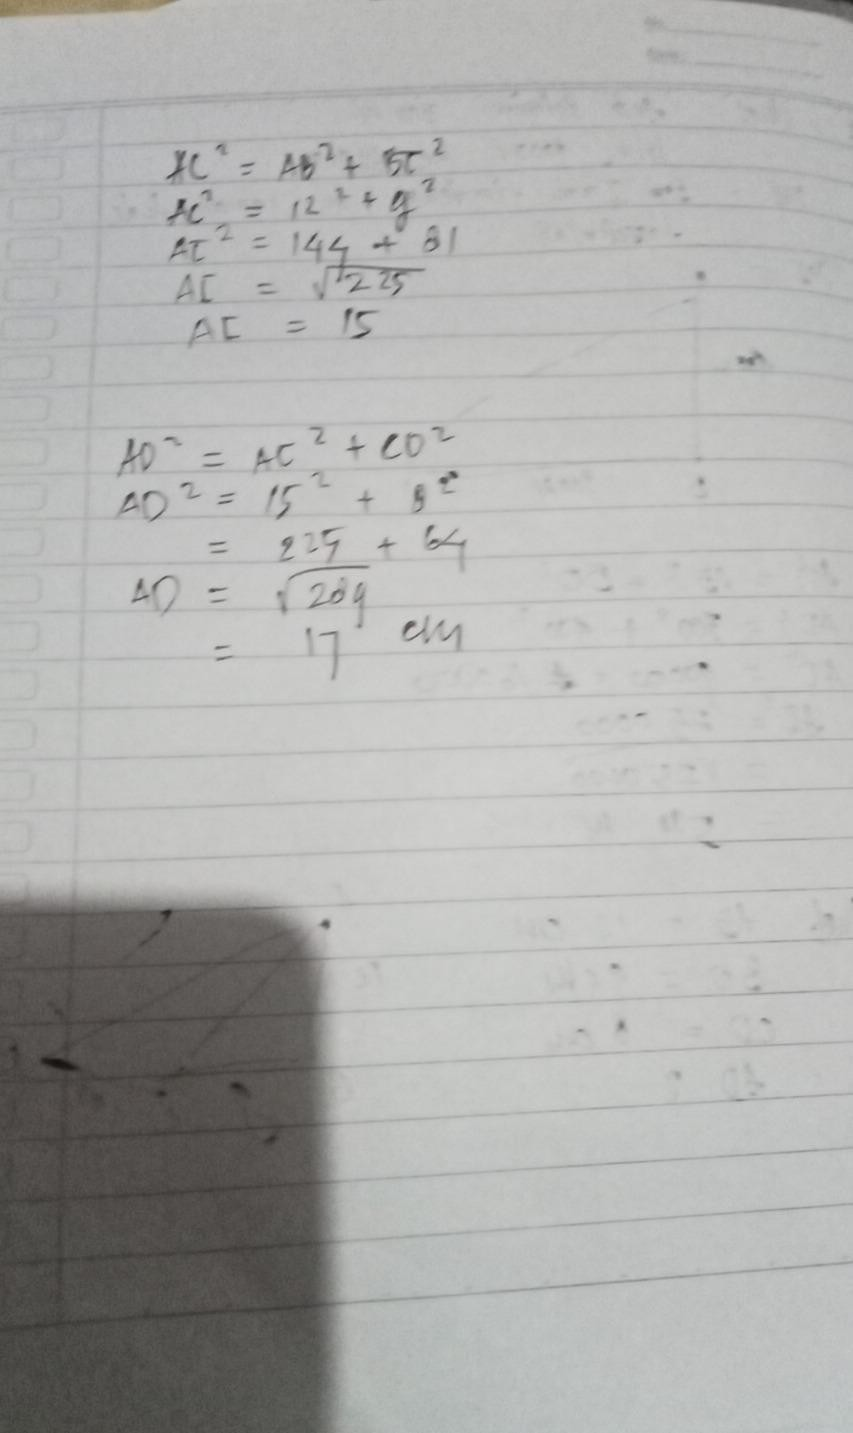 AC² = AB² + BC²
AC² = 12² + 9²
AC² = 144 + 81
AC = √225
AC = 15
AD² = AC² + CD²
AD² = 15² + 8²
= 225 + 64
AD = √289
= 17 cm